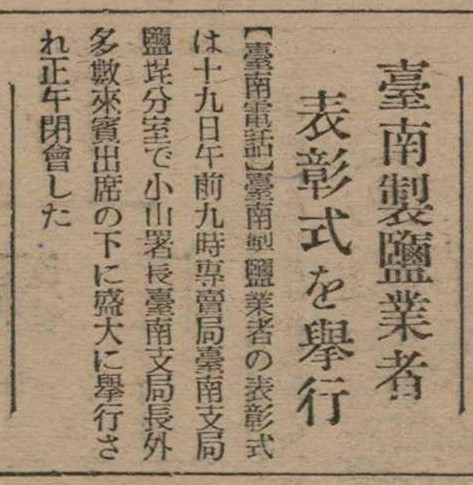 臺南製鹽業者
表彰式を擧行
【臺南電話】臺南製鹽業者の表彰式
は十九日午前九時專賣局臺南支局
鹽埕分室で小山署長臺南支局長外
多數來賓出席の下に盛大に擧行さ
れ正午閉會した